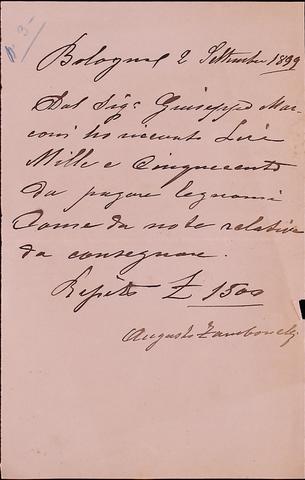 N. 3
Bologna 2 Settembre 1899
Dal Sig. Giuseppe Mar-
coni ho ricevuto Lire
Mille e Cinquecento
da pagare legnami
Come da note relative
da consegnare.
Ripeto £ 1500
Augusto Zambonelli